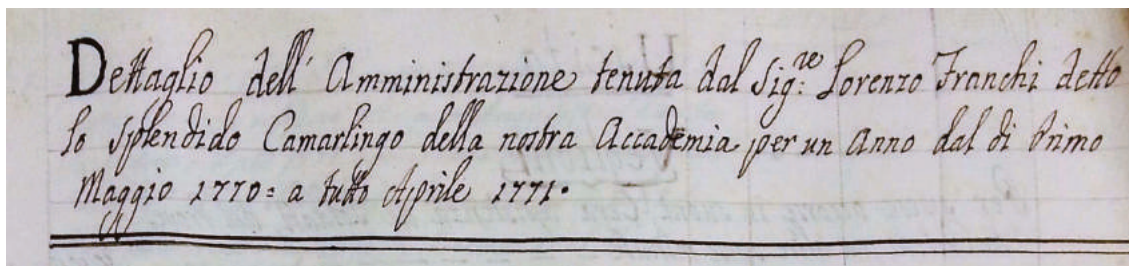 Dettaglio dell' Amministrazione tenuta dal Sig:re Lorenzo Franchi detto
lo Splendido Camarlingo della nostra Accademia per un Anno dal di Primo
Maggio 1770= a tutto Aprile 1771.